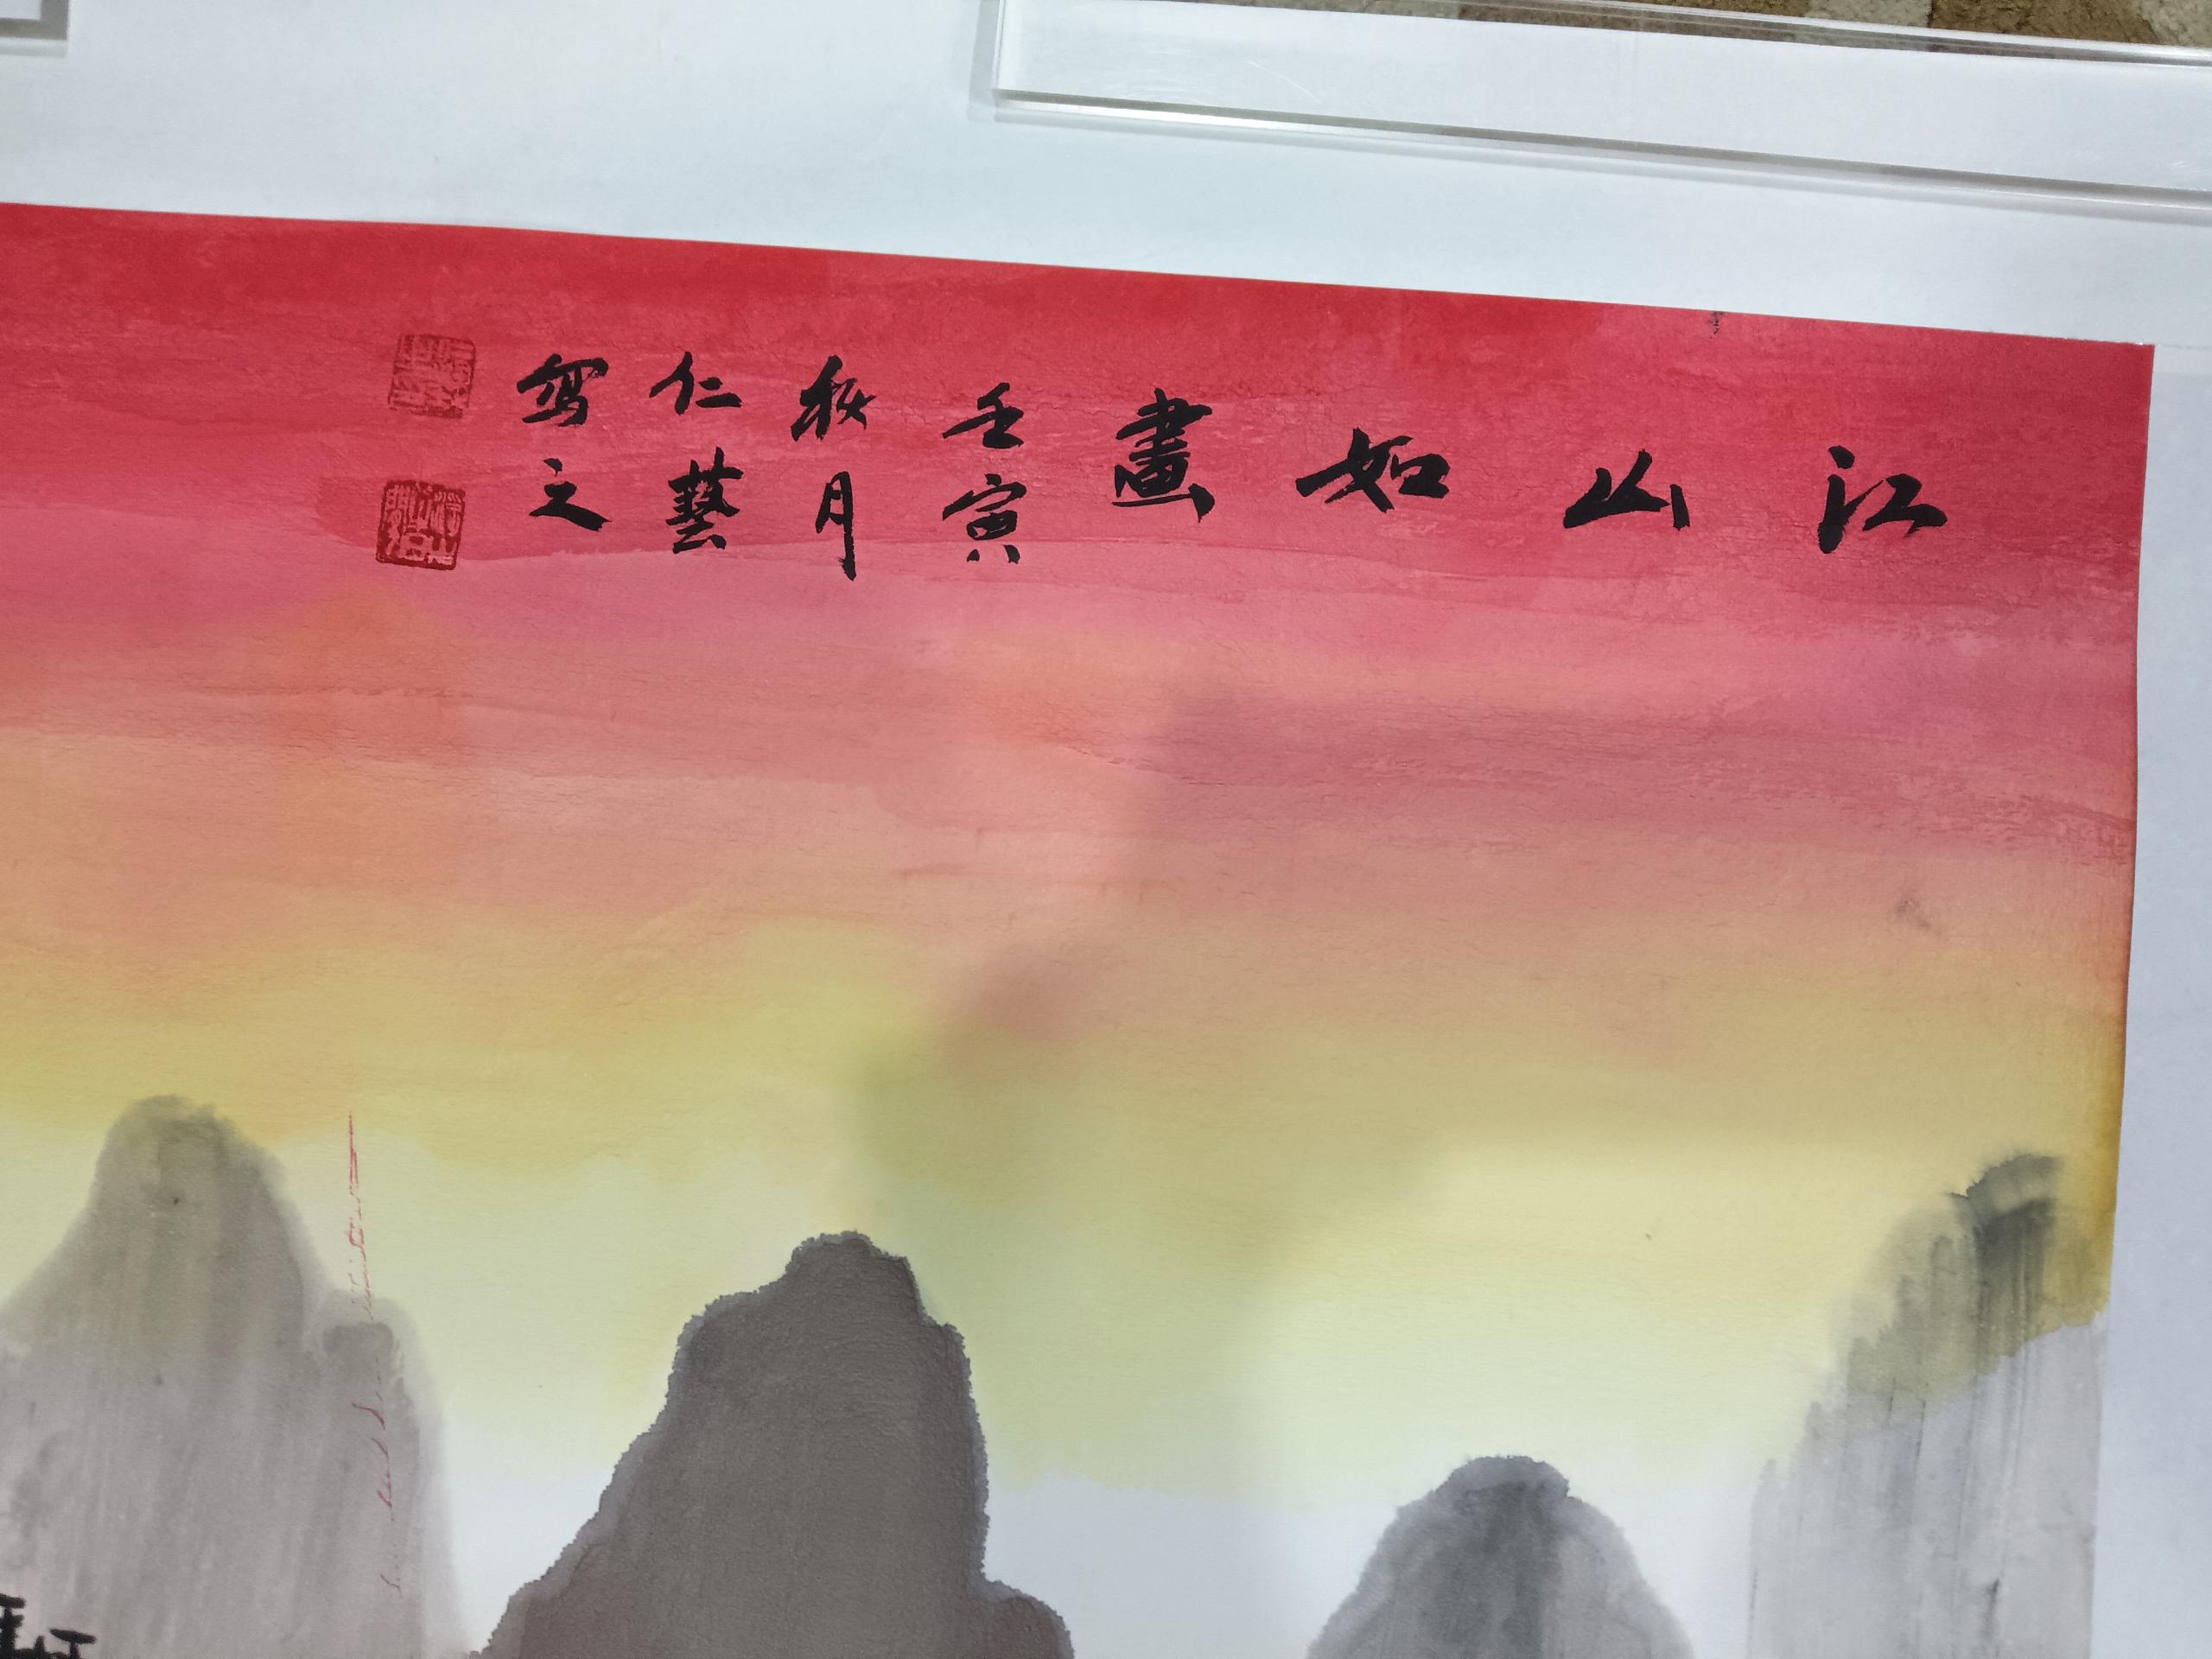 江山如畫
壬寅
秋月
仁藝
写之